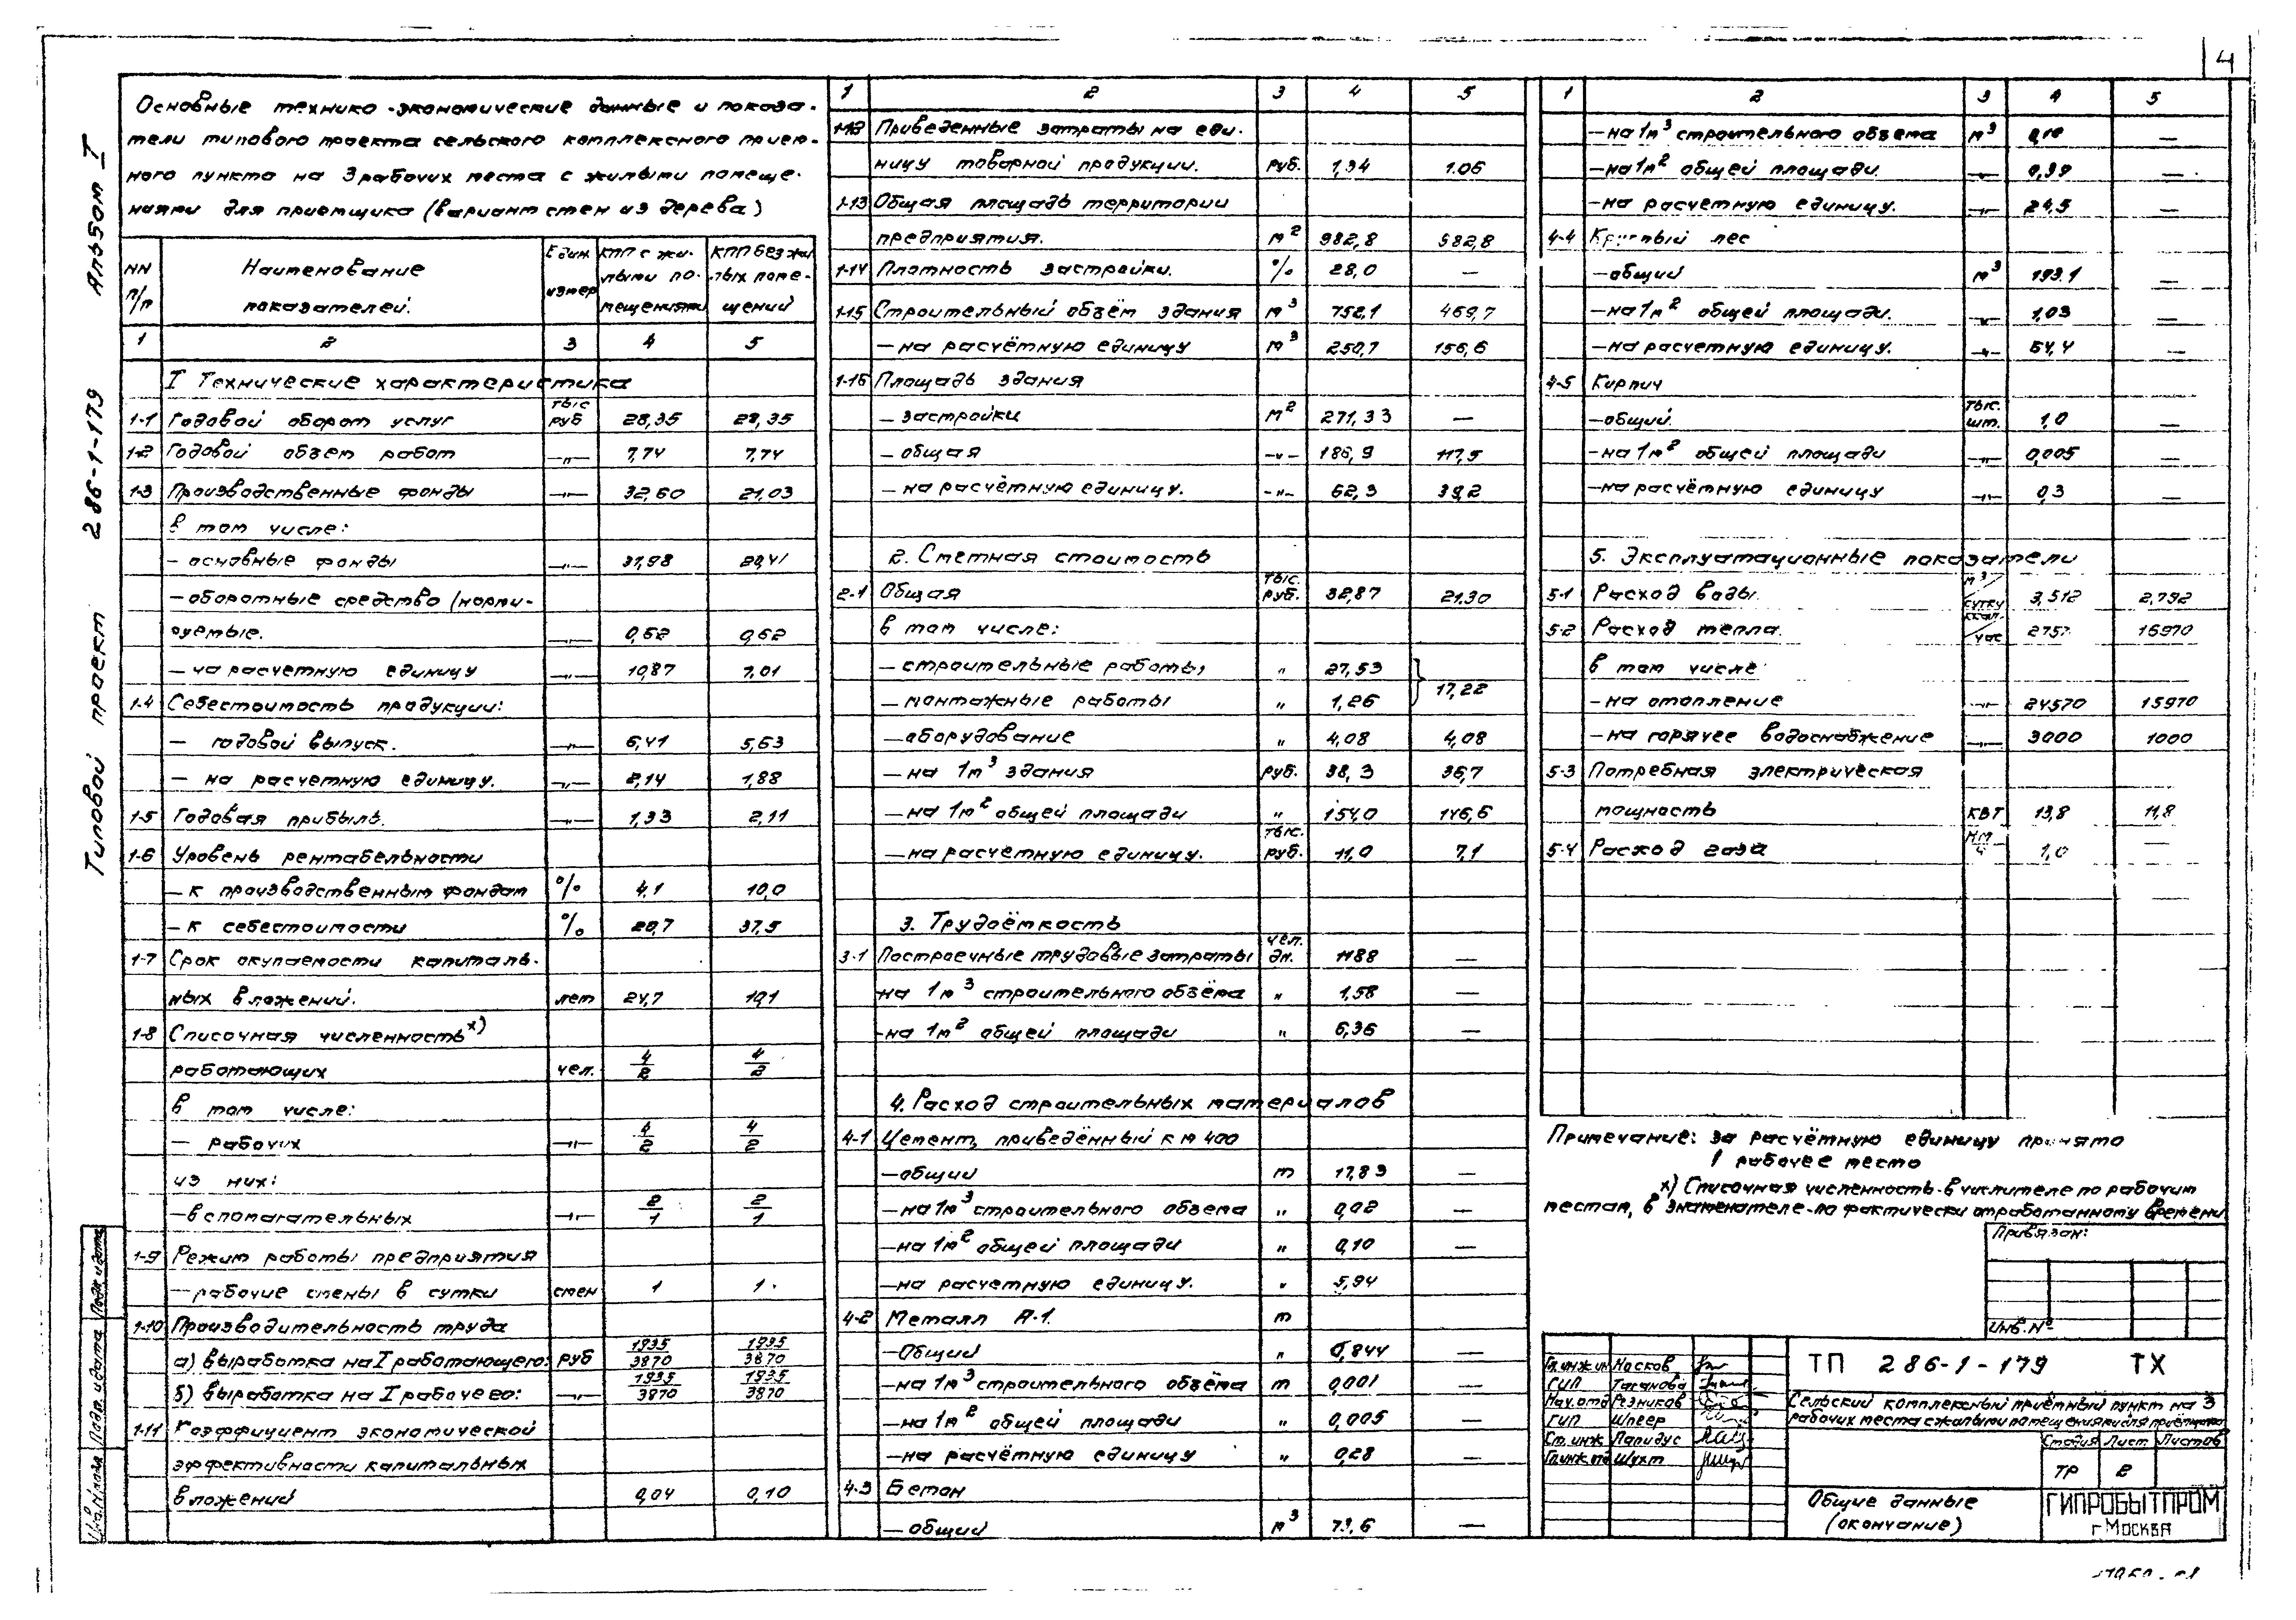 4
Типовой проект 286-1-179 Альбом I
Основные технико-экономические данные и показа-
тели типового проекта сельского комплексного прием-
ного пункта на 3 рабочих места с жилыми помеще-
ниями для приемщика (вариант стен из дерева)
NN п/п | Наименование показателей. | Един измер | КПП с жи-лыми по-мещениями | КПП без жи лых поме-щений
1 2 3 4 5
I Технические характеристика
1-1 Годовой оборот услуг тыс руб 28,35 28,35
1-2 Годовой объем работ —"— 7,74 7,74
1-3 Производственные фонды —"— 32,60 21,03
в том числе:
- основные фонды —"— 31,98 20,41
- оборотные средство (норми-
руемые. —"— 0,62 0,62
- на расчетную единицу —"— 10,87 7,01
1-4 Себестоимость продукции:
- годовой выпуск. —"— 6,41 5,63
- на расчетную единицу. —"— 2,14 1,88
1-5 Годовая прибыль. —"— 1,33 2,11
1-6 Уровень рентабельности
- к производственным фондам % 4,1 10,0
- к себестоимости % 20,7 37,5
1-7 Срок окупаемости капиталь-
ных вложений. лет 24,7 10,1
1-8 Списочная численность х)
работающих чел. 4/2 4/2
в том числе:
- рабочих —"— 4/2 4/2
из них:
- вспомагательных —"— 2/1 2/1
1-9 Режим работы предприятия
- рабочие смены в сутки смен 1 1
1-10 Производительность труда
а) выработка на I работающего: руб 1935/3870 1935/3870
б) выработка на I рабочего: —"— 1935/3870 1935/3870
1-11 Коэффициент экономической
эффективности капитальных
вложений 0,04 0,10
1 2 3 4 5
1-12 Приведенные затраты на еди-
ницу товарной продукции. руб. 1,34 1.06
1-13 Общая площадь территории
предприятия. м2 982,8 982,8
1-14 Плотность застройки. % 28,0 —
1-15 Строительный объём здания м3 752,1 469,7
- на расчётную единицу м3 250,7 156,6
1-16 Площадь здания
- застройки м2 271,33 —
- общая —"— 186,9 117,5
- на расчётную единицу. —"— 62,3 39,2
2. Сметная стоимость
2-1 Общая тыс. руб. 32,87 21.30
в том числе:
- строительные работы " 27,53 } 17,22
- монтажные работы " 1,26
- оборудование " 4,08 4,08
- на 1м3 здания руб. 38,3 36,7
- на 1м2 общей площади " 154,0 146,6
- на расчетную единицу. тыс. руб. 11,0 7,1
3. Трудоёмкость
3-1 Построечные трудовые затраты чел. дн. 1188 —
на 1м3 строительного объёма " 1,58 —
-на 1м2 общей площади " 6,36 —
4. Расход строительных материалов
4-1 Цемент, приведённый к м 400
-общий т 17,83 —
-на 1м3 строительного объема " 0,02 —
-на 1м2 общей площади " 0,10 —
-на расчетную единицу. " 5,94
4-2 Металл А-1. т
-Общий " 0,844 —
-на 1м3 строительного объёма т 0,001 —
-на 1м2 общей площади " 0,005 —
-на расчётную единицу " 0,28 —
4-3 Бетон
- общий м3 73,6 —
1 2 3 4 5
-на 1м3 строительного объема м3 0,10 —
-на 1м2 общей площади. —"— 0,39 —
-на расчетную единицу. —"— 24,5 —
4-4 Круглый лес
-общий м3 193.1 —
-на 1м2 общей площади. —"— 1,03 —
-на расчетную единицу. —"— 64,4 —
4-5 Кирпич
-общий. тыс. шт. 1,0 —
-на 1м2 общей площади —"— 0,005 —
-на расчётную единицу —"— 0,3 —
5. Эксплуатационные показатели
5-1 Расход воды. м3/сутку 3,512 2,792
5-2 Расход тепла. ккал./час 2757 16970
в том числе:
-на отопление —"— 24570 15970
-на горячее водоснабжение —"— 3000 1000
5-3 Потребная электрическая
мощность КВТ 13,8 11,8
5-4 Расход газа 1,0 —
Примечание: за расчётную единицу принято
1 рабочее место
х) Списочная численность-в числителе по рабочим
местам, в знаменателе-по фактически отработанному времени
Привязан:
Инв.№
Гл.инж ин Насков
ГИП Таганова
Нач.отд Резников
ГИП Шпеер
Ст.инж Лапидус
Гл.инж.пд Шухт
ТП 286-1-179 ТХ
Сельский комплексный приёмный пункт на 3
рабочих места с жилыми помещениями для приёмщика
Стадия Лист Листов
ТР 2
Общие данные
(окончание)
ГИПРОБЫТПРОМ
г. МОСКВА
Инв.N подл Подп. и дата